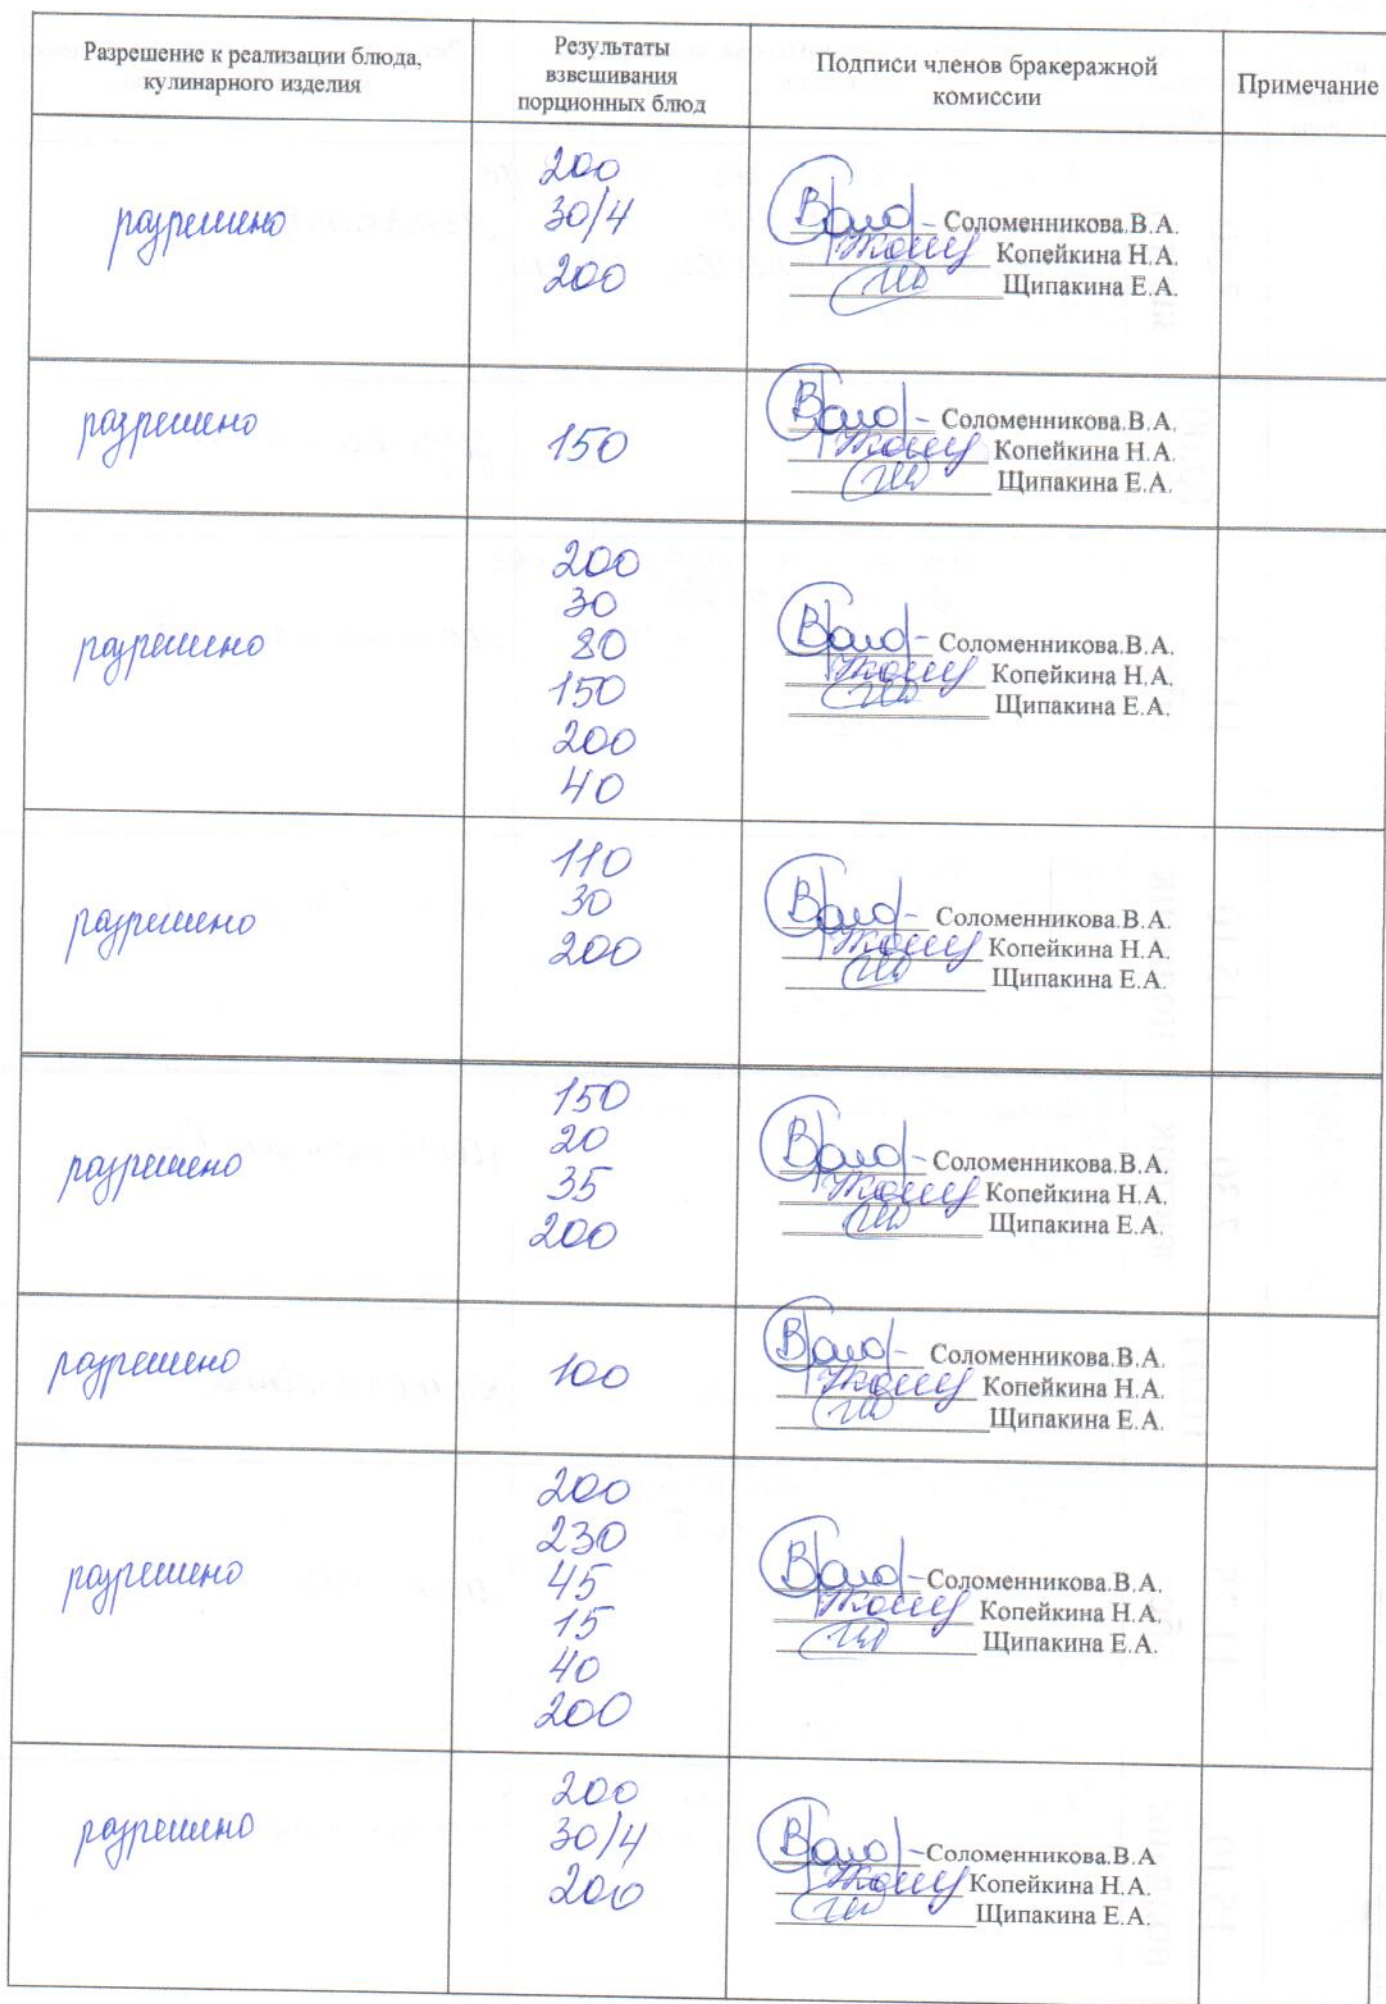 Разрешение к реализации блюда,
кулинарного изделия
Результаты
взвешивания
порционных блюд
Подписи членов бракеражной
комиссии
Примечание
разрешено
200
30/4
200
Соломенникова.В.А.
Копейкина Н.А.
Щипакина Е.А.
разрешено
150
Соломенникова.В.А.
Копейкина Н.А.
Щипакина Е.А.
разрешено
200
30
80
150
200
40
Соломенникова.В.А.
Копейкина Н.А.
Щипакина Е.А.
разрешено
110
30
200
Соломенникова.В.А.
Копейкина Н.А.
Щипакина Е.А.
разрешено
150
20
35
200
Соломенникова.В.А.
Копейкина Н.А.
Щипакина Е.А.
разрешено
100
Соломенникова.В.А.
Копейкина Н.А.
Щипакина Е.А.
разрешено
200
230
45
15
40
200
Соломенникова.В.А.
Копейкина Н.А.
Щипакина Е.А.
разрешено
200
30/4
200
Соломенникова.В.А
Копейкина Н.А.
Щипакина Е.А.